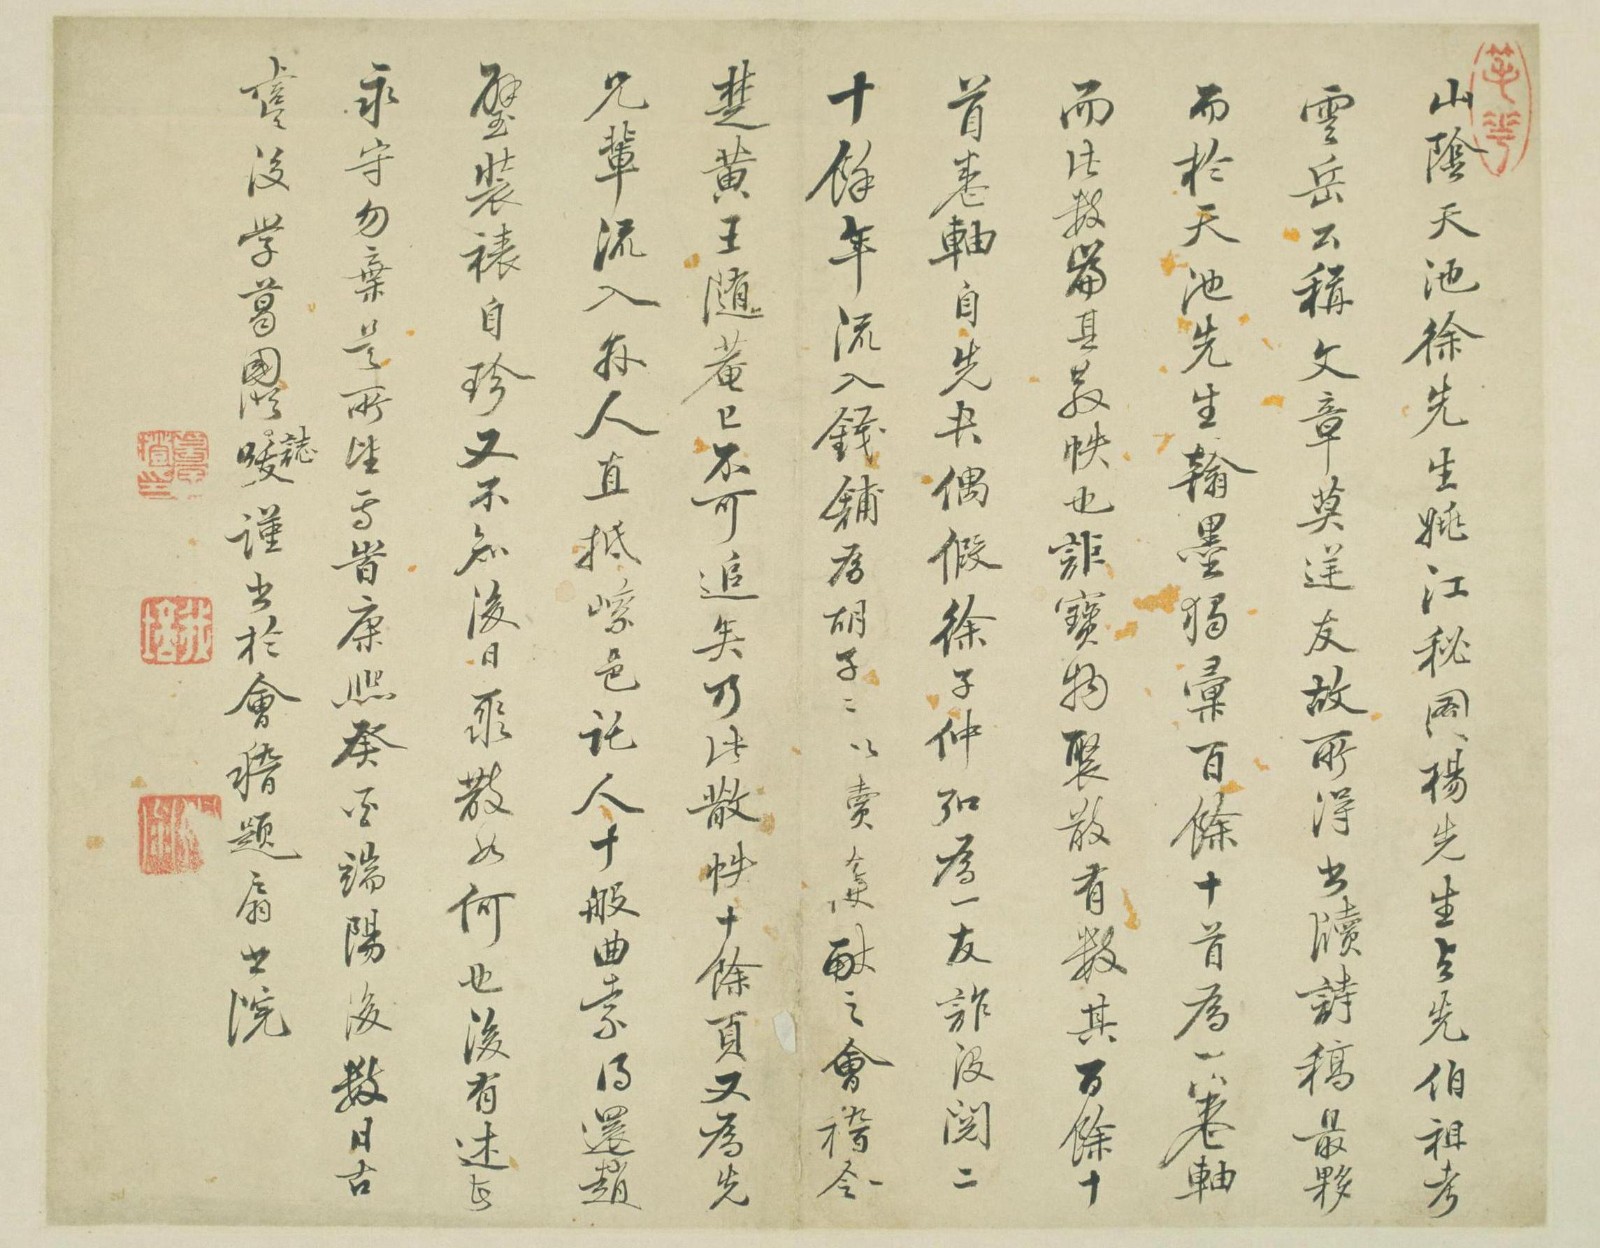 山陰天池徐先生姚江秘圖楊先生與先伯祖考
雲岳公稱文章莫逆友故所得書牘詩稿最夥
而於天池先生翰墨獨彙百餘十首為一小卷軸
而此數篇其散帙也詎寶物聚散有數其百餘十
首卷軸自先考偶假徐子仲弘為一友詐沒閱二
十餘年流入錢鋪為胡子〻以賣 酬之會稽令
楚黃王隨菴已不可追矣乃此散帙十餘頁又為先
兄輩流入 人直抵 邑託人十般曲索得還趙
璧裝裱自珍又不知後日聚散如何也後有述者
永守勿棄是所望焉時康熙癸 端陽後數日古
虞後學葛國 誌
謹書於會稽題扇書院